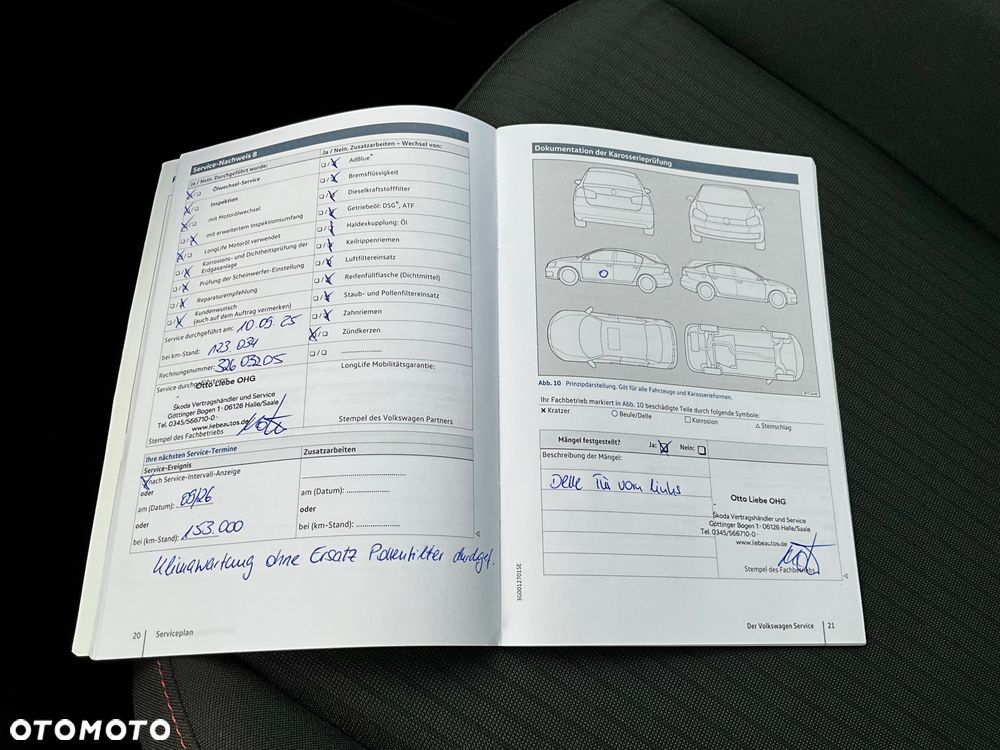 Service-Nachweis 8
Ja / Nein. Durchgeführt wurde:
Ölwechsel-Service
Inspektion
mit Motorölwechsel
mit erweitertem Inspektionsumfang
LongLife Motoröl verwendet
Korrosions- und Dichtheitsprüfung der
Erdgasanlage
Prüfung der Scheinwerfer-Einstellung
Reparaturempfehlung
Kundenwunsch
(auch auf dem Auftrag vermerken)
Service durchgeführt am: 10.09.25
bei km-Stand: 123 034
Rechnungsnummer: 326 03205
Service durchgeführt
Otto Liebe OHG
Škoda Vertragshändler und Service
Göttinger Bogen 1 · 06126 Halle/Saale
Tel. 0345/566710-0 ·
www.liebeautos.de
Stempel des Fachbetriebs
Ja / Nein. Zusatzarbeiten – Wechsel von:
AdBlue®
Bremsflüssigkeit
Dieselkraftstofffilter
Getriebeöl: DSG®, ATF
Haldexkupplung: Öl
Keilrippenriemen
Luftfiltereinsatz
Reifenfüllflasche (Dichtmittel)
Staub- und Pollenfiltereinsatz
Zahnriemen
Zündkerzen
LongLife Mobilitätsgarantie:
Stempel des Volkswagen Partners
Ihre nächsten Service-Termine
Service-Ereignis
nach Service-Intervall-Anzeige
oder
am (Datum): 09/26
oder
bei (km-Stand): 153.000
Zusatzarbeiten
am (Datum):
oder
bei (km-Stand):
Klimawartung ohne Ersatz Pollenfilter durchgef.
20 Serviceplan
Dokumentation der Karosserieprüfung
Abb. 10 Prinzipdarstellung. Gilt für alle Fahrzeuge und Karosserieformen.
Ihr Fachbetrieb markiert in Abb. 10 beschädigte Teile durch folgende Symbole:
× Kratzer ○ Beule/Delle □ Korrosion △ Steinschlag
Mängel festgestellt? Ja: Nein:
Beschreibung der Mängel:
Delle Tür vorn links
Otto Liebe OHG
Škoda Vertragshändler und Service
Göttinger Bogen 1 · 06126 Halle/Saale
Tel. 0345/566710-0 ·
www.liebeautos.de
Stempel des Fachbetriebs
3G0012701SE
Der Volkswagen Service 21
OTOMOTO